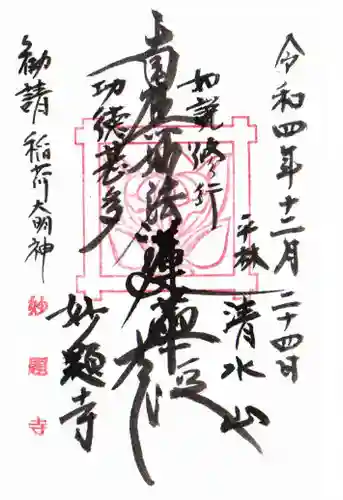 令和四年十二月二十四日
平林
清水山
如説修行
南無妙法蓮華経
功徳甚多
妙顕寺
勧請稲荷大明神
妙顕寺